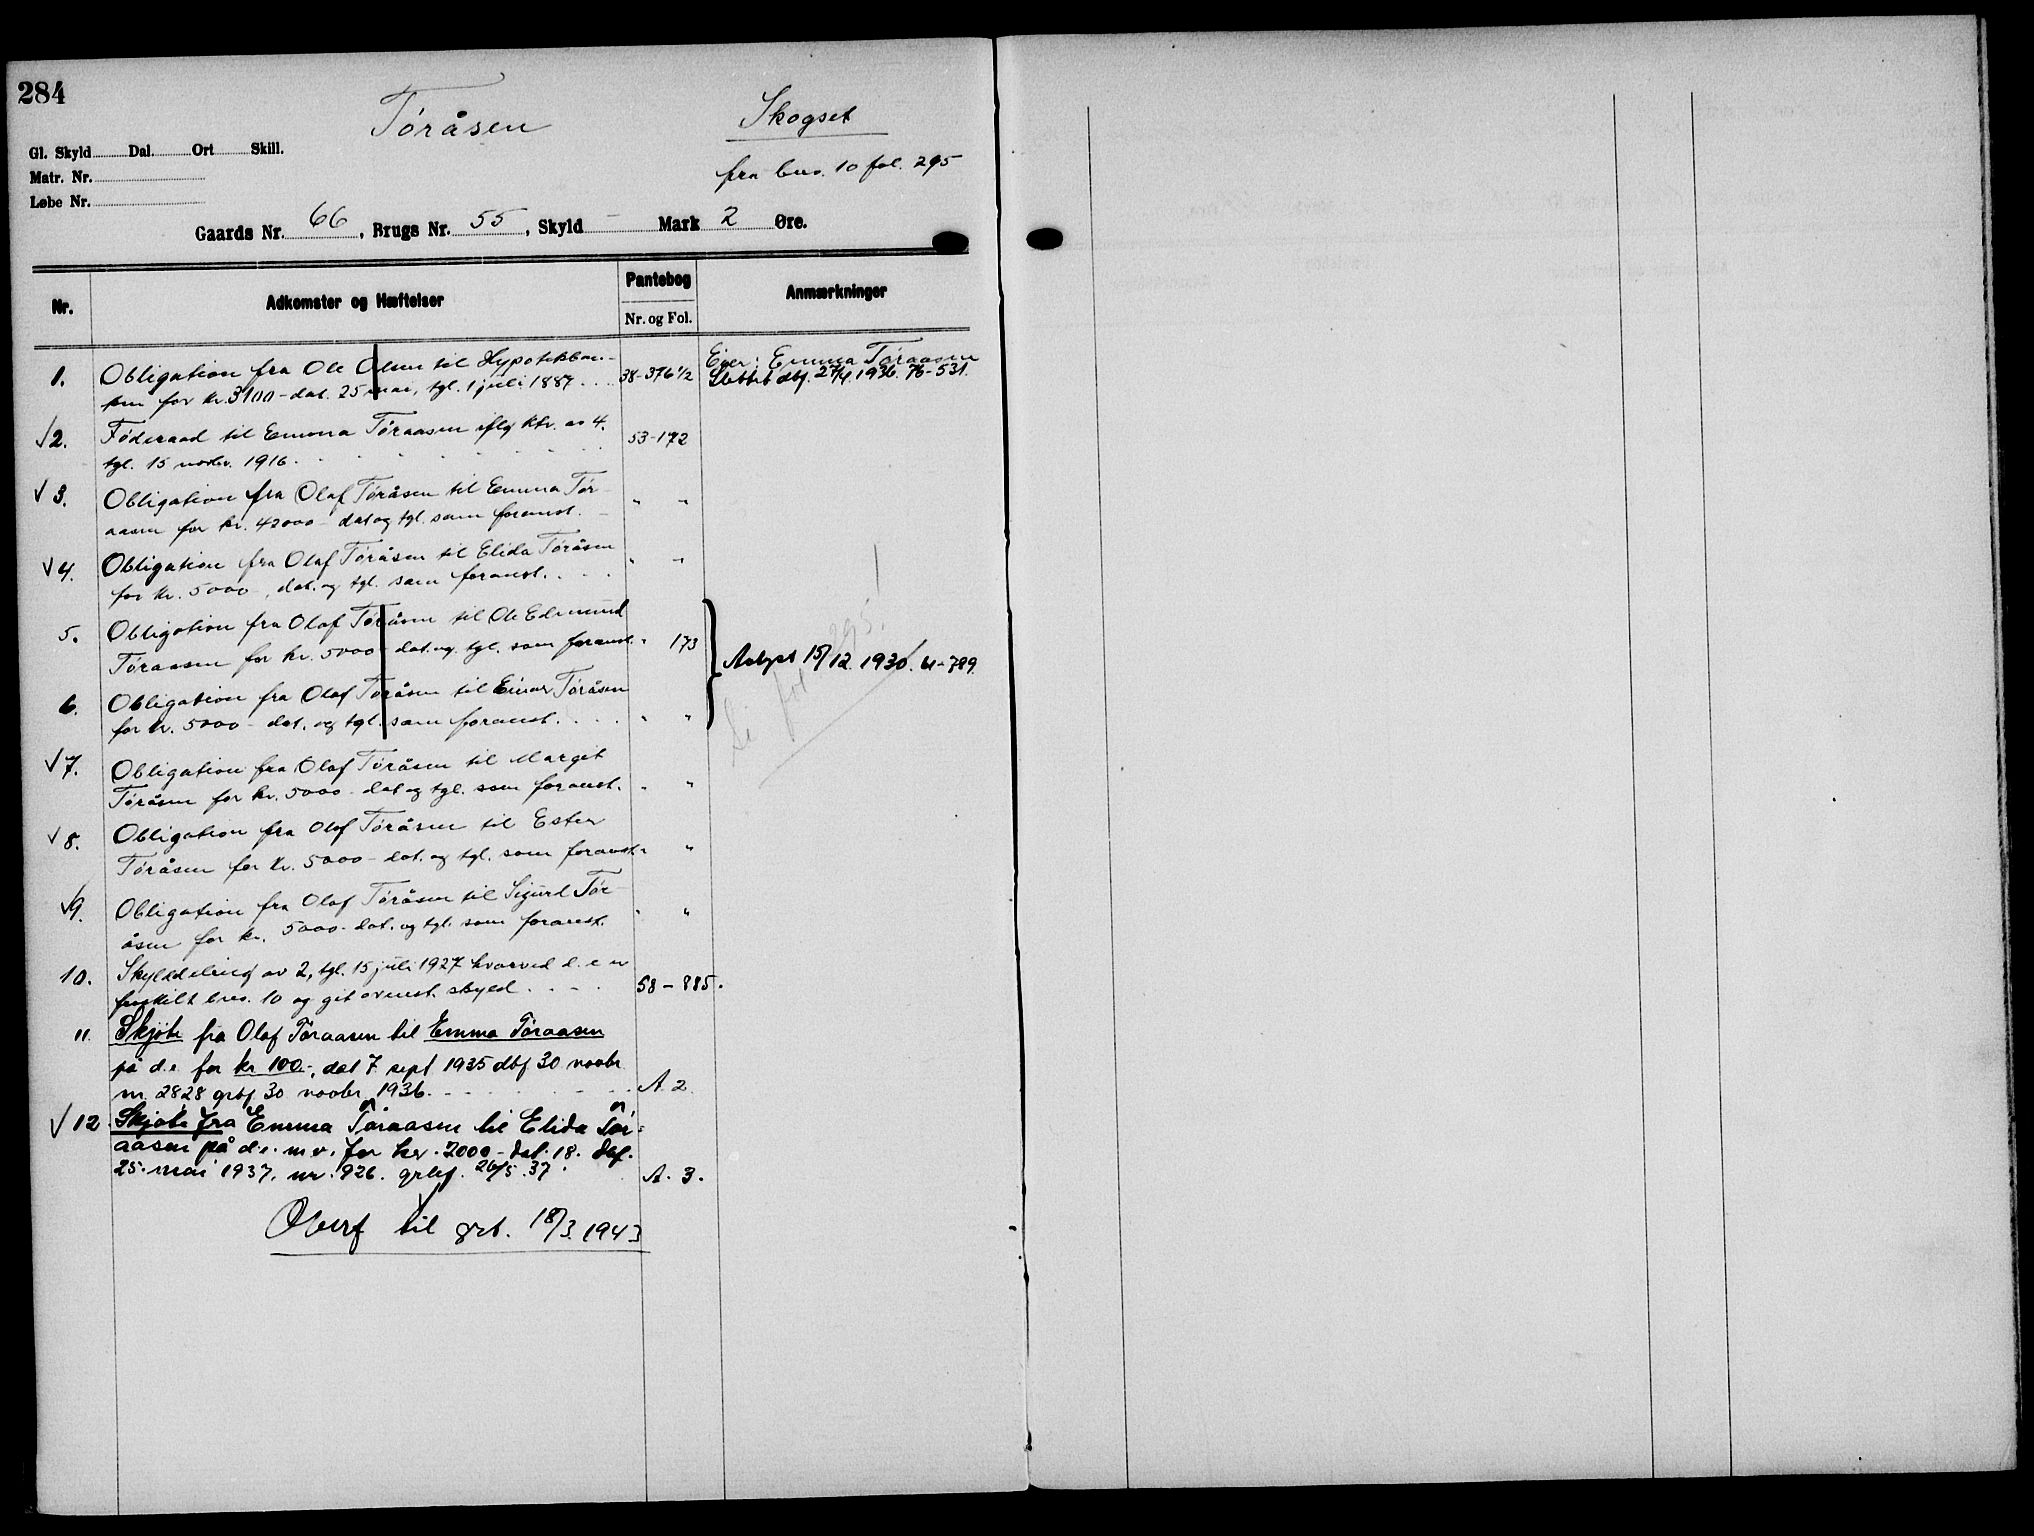 284
Töråsen
Skogset
Gl. Skyld Dal. Ort Skill.
Matr. Nr.
fra brs. 10 fol. 295
Løbe Nr.
Gaards Nr. 66, Brugs Nr. 55, Skyld - Mark 2 Øre.
Nr. Adkomster og Hæftelser Pantebog Nr. og Fol. Anmærkninger
1. Obligation fra Ole Olsen til Hypotekban-
ken for kr. 3100 - dat. 25 mai, tgl. 1 juli 1887 . . 38-376 1/2
Eier: Emma Töraasen
Slettet dbf. 27/4 1936. 76-531.
√2. Föderaad til Emma Töraasen iflg ktr. av 4.
tgl. 15 novbr. 1916. 53-172
√3. Obligation fra Olaf Töråsen til Emma Tör-
aasen for kr. 42000 - dat og tgl. som foranst. " "
√4. Obligation fra Olaf Töråsen til Elida Töråsen
for kr. 5000 -, dat. og tgl. som foranst. . . . " "
5. Obligation fra Olaf Töråsen til Ole Edmund
Töraasen for kr. 5000 - dat. og tgl. som foranst. " 173
Avlyst 15/12. 1930. 61-789.
6. Obligation fra Olaf Töråsen til Einar Töråsen
for kr. 5000 - dat. og tgl. som foranst. . . . . " "
Se fol. 295!
√7. Obligation fra Olaf Töråsen til Margit
Töråsen for kr. 5000 - dat og tgl. som foranst. " "
√8. Obligation fra Olaf Töråsen til Ester
Töråsen for kr. 5000 - dat. og tgl. som foranst. " "
√9. Obligation fra Olaf Töråsen til Sigurd Tör-
åsen for kr. 5000 - dat. og tgl. som foranst. " "
10. Skylddeling av 2, tgl. 15 juli 1927 hvorved d. e er
fraskilt brs. 10 og git ovenst. skyld . . . . 58 - 885.
11. Skjöte fra Olaf Töraasen til Emma Töraasen
på d.e for kr 100.-, dat 7 sept 1935 dbf 30 novbr
nr. 2828 grbf 30 novbr. 1936. A. 2
√12. Skjöte fra Emma Töraasen til Elida Tör-
aasen på d.e. m.v. for kr. 7000 - dat. 18. dbf.
25. mai 1937. nr. 926. grbf. 26/5. 37. A. 3.
Overf til grb. 18/3. 1943